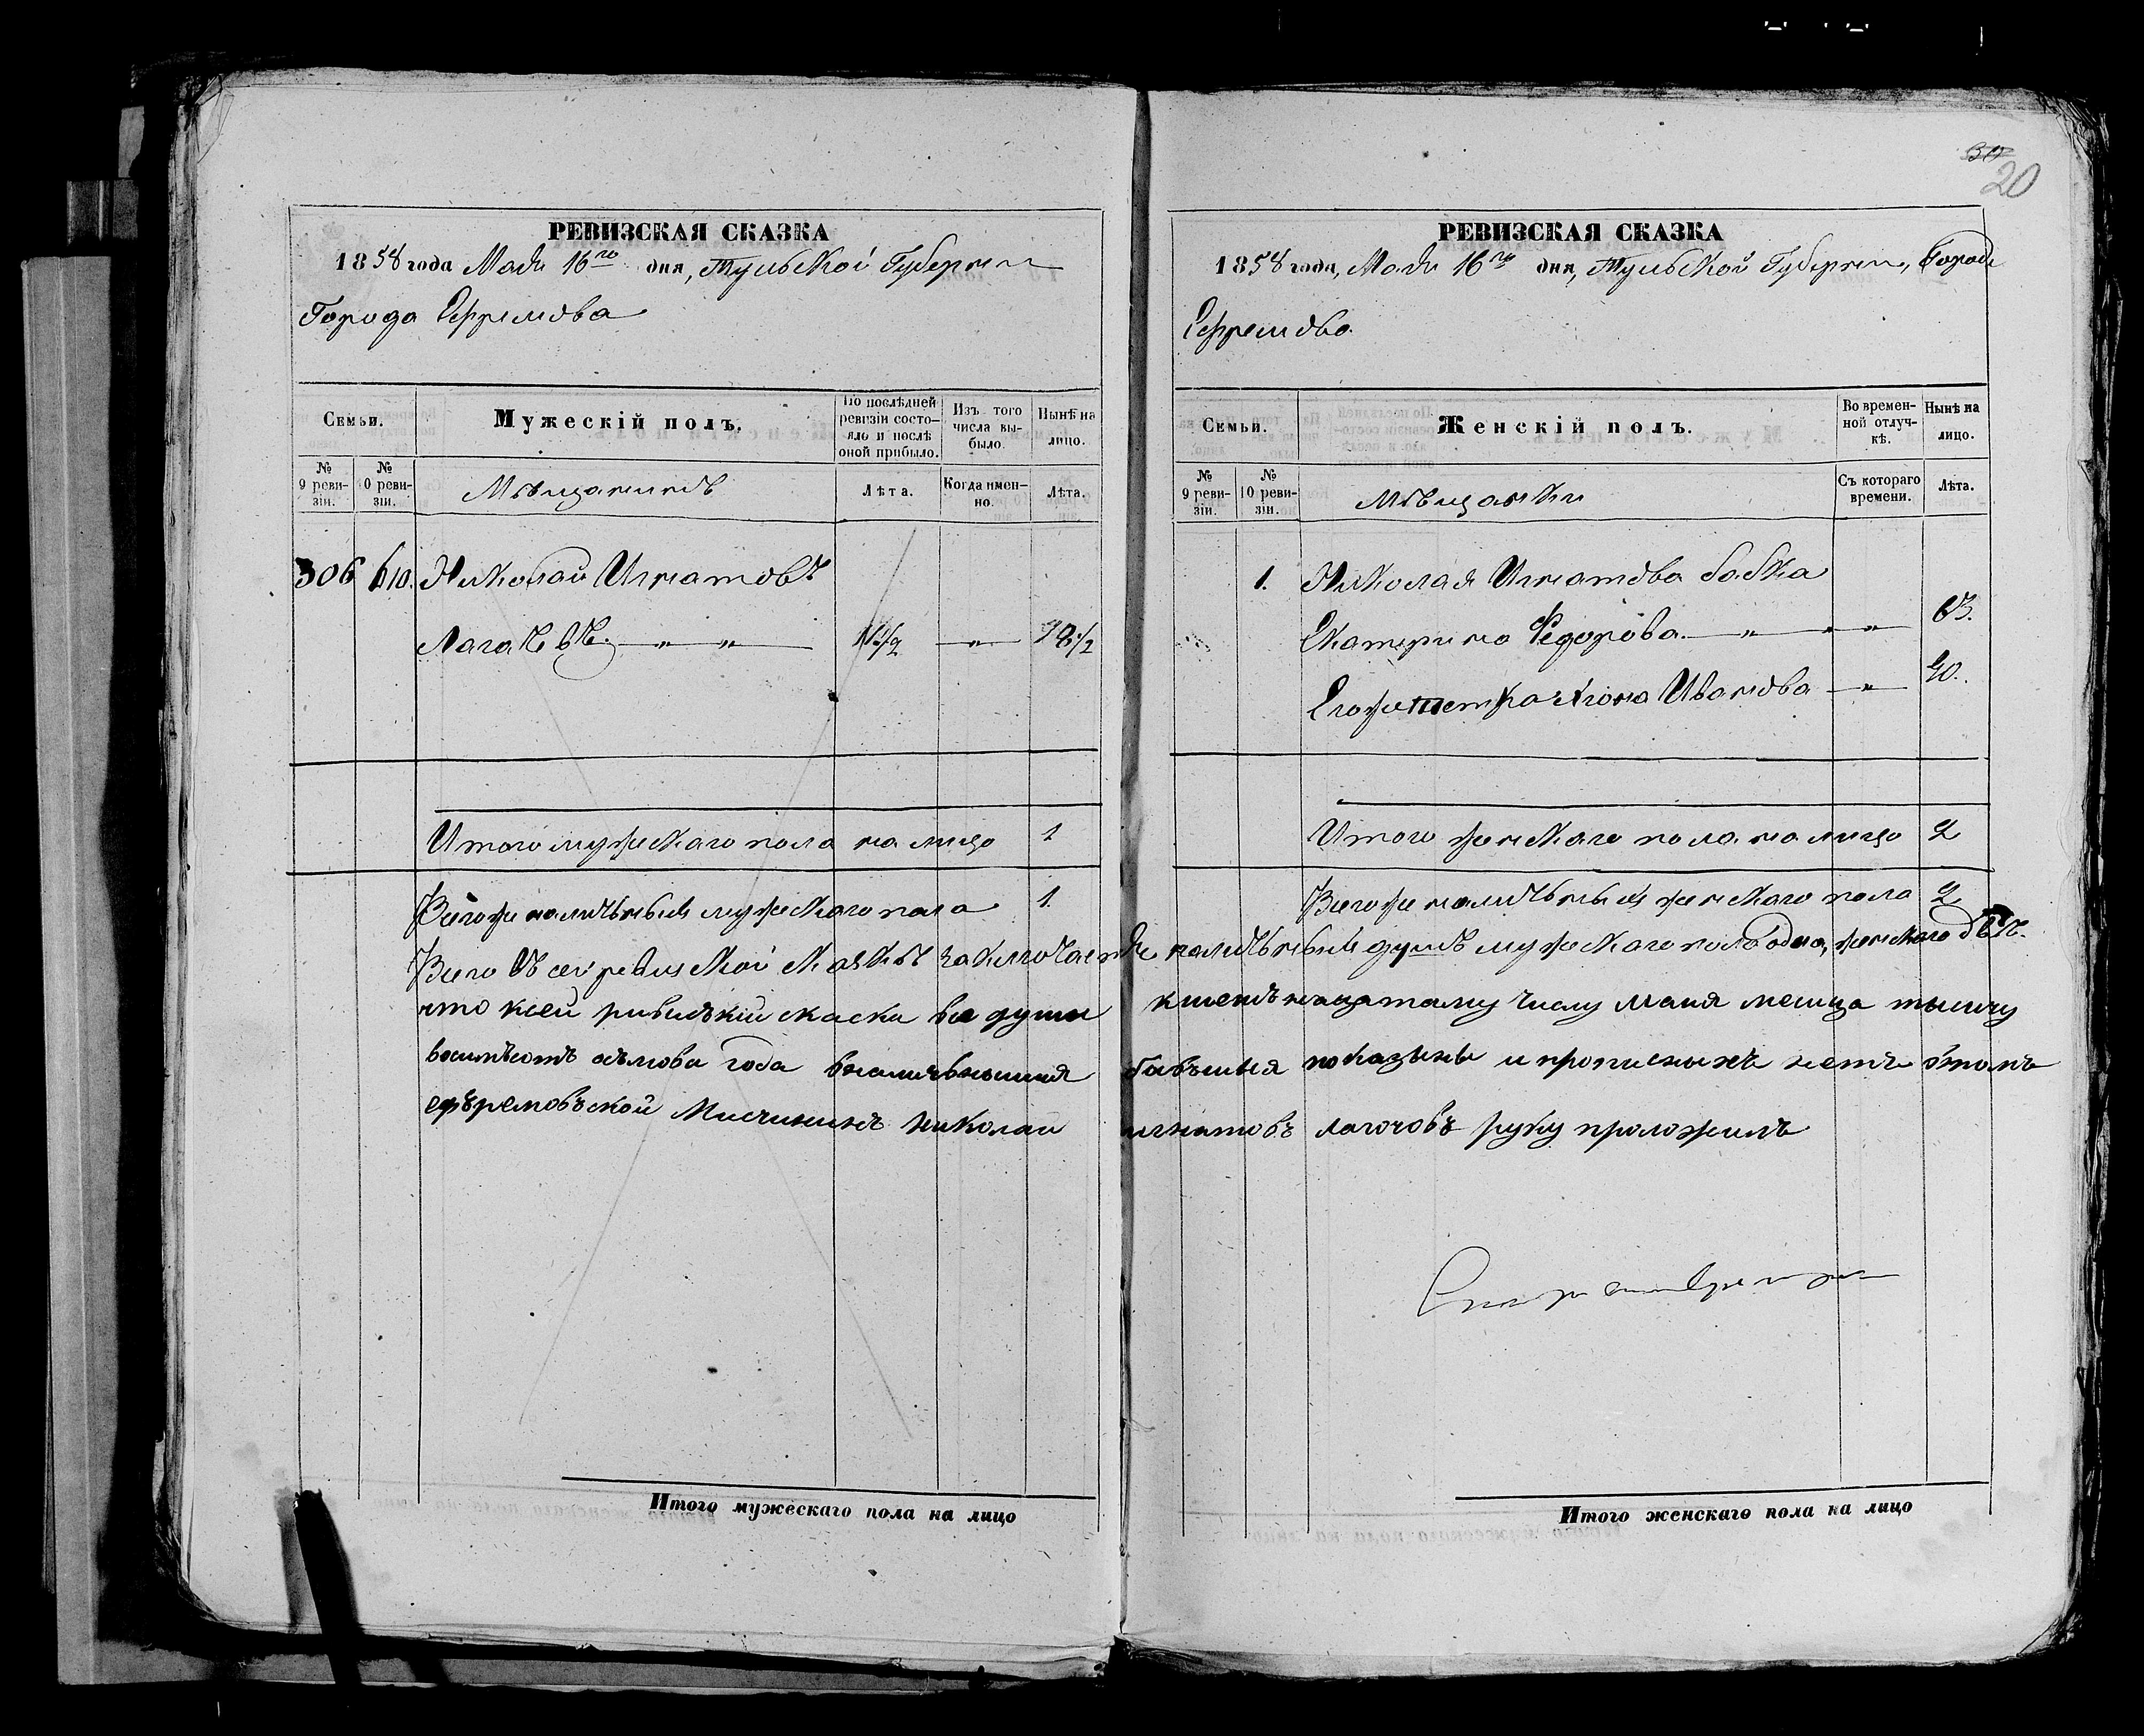 30
20
РЕВИЗСКАЯ СКАЗКА
1858 года Мая 16го дня, Тульской Губернии
Города Ефремова
Семьи.
Мужескій полъ.
По послѣдней ревизіи состояло и послѣ оной прибыло.
Изъ того числа выбыло.
Нынѣ на лицо.
№ 9 ревизіи.
№ 0 ревизіи.
Мѣщанинъ
Лѣта.
Когда именно.
Лѣта.
306 610. Николай Игнатовъ
Лагачевъ. — „ — „ — — „ — 18½
Итого мужескаго пола на лицо 1
Всего же наличныхъ мужескаго пола 1.
РЕВИЗСКАЯ СКАЗКА
1858 года, Мая 16го дня, Тульской Губернии, Города
Ефремова.
Семьи.
Женскій полъ.
Во временной отлучкѣ.
Нынѣ на лицо.
№ 9 ревизіи.
№ 10 ревизіи.
Мѣщанки
Съ котораго времени.
Лѣта.
1. Николая Игнатова бабка
Екатерина Федорова. — „ — „ — „ — 63.
Его же тетка Анна Иванова — „ — 40.
Итого женскаго пола на лицо 2
Всего же наличныхъ женскаго пола 2
Всего въ сей ревизской сказкѣ заключается наличныхъ душъ мужескаго пола одна, женскаго двѣ.
что ксей ривизкій скаска все души кшеснатцатому числу маия месица тысичу
восимъсотъ осмова года показыны и прописныхъ нетъ втомъ
ефремовъской мисчининъ николаи игнатовъ лагочовъ руку проложилъ
Итого мужескаго пола на лицо
Итого женскаго пола на лицо